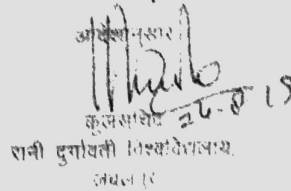 आदेशानुसार
कुलसचिव
रानी दुर्गावती विश्वविद्यालय,
जबलपुर